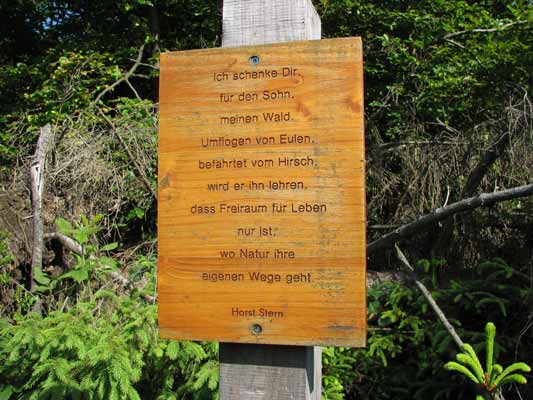 Ich schenke Dir,
für den Sohn,
meinen Wald.
Umflogen von Eulen,
befährtet vom Hirsch,
wird er ihn lehren,
dass Freiraum für Leben
nur ist,
wo Natur ihre
eigenen Wege geht.
Horst Stern